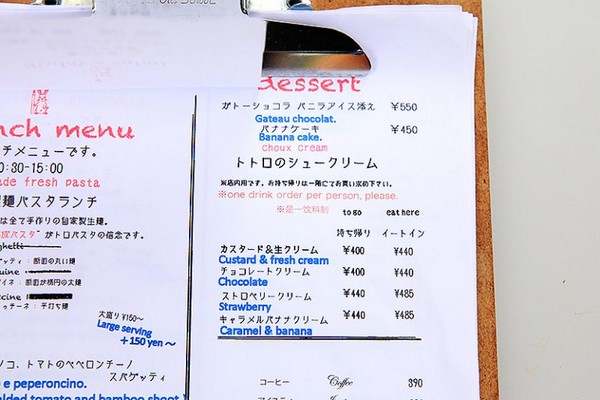 dessert
ガトーショコラ バニラアイス添え ¥550
Gateau chocolat.
バナナケーキ ¥450
Banana cake.
choux cream
トトロのシュークリーム
※店内用です。お持ち帰りは一階にてお買い求め下さい。
※one drink order per person, please.
※是一饮料制 to go eat here
持ち帰り イートイン
カスタード&生クリーム ¥400 ¥440
Custard & fresh cream
チョコレートクリーム ¥400 ¥440
Chocolate
ストロベリークリーム ¥440 ¥485
Strawberry
キャラメルバナナクリーム ¥440 ¥485
Caramel & banana
コーヒー Coffee 390
nch menu
チメニューです。
0:30-15:00
ade fresh pasta
製麺パスタランチ
は全て手作りの自家製生麺。
パスタ" がトロパスタの信念です。
ghetti
ゲッティ : 断面の丸い麺
uine
イネ : 断面が楕円の太麺
ccine
ッチーネ : 平打ち麺
大盛り ¥150〜
Large serving
+150 yen〜
ノコ、トマトのペペロンチーノ
スパゲッティ
o e peperoncino.
alded tomato and bamboo shoot